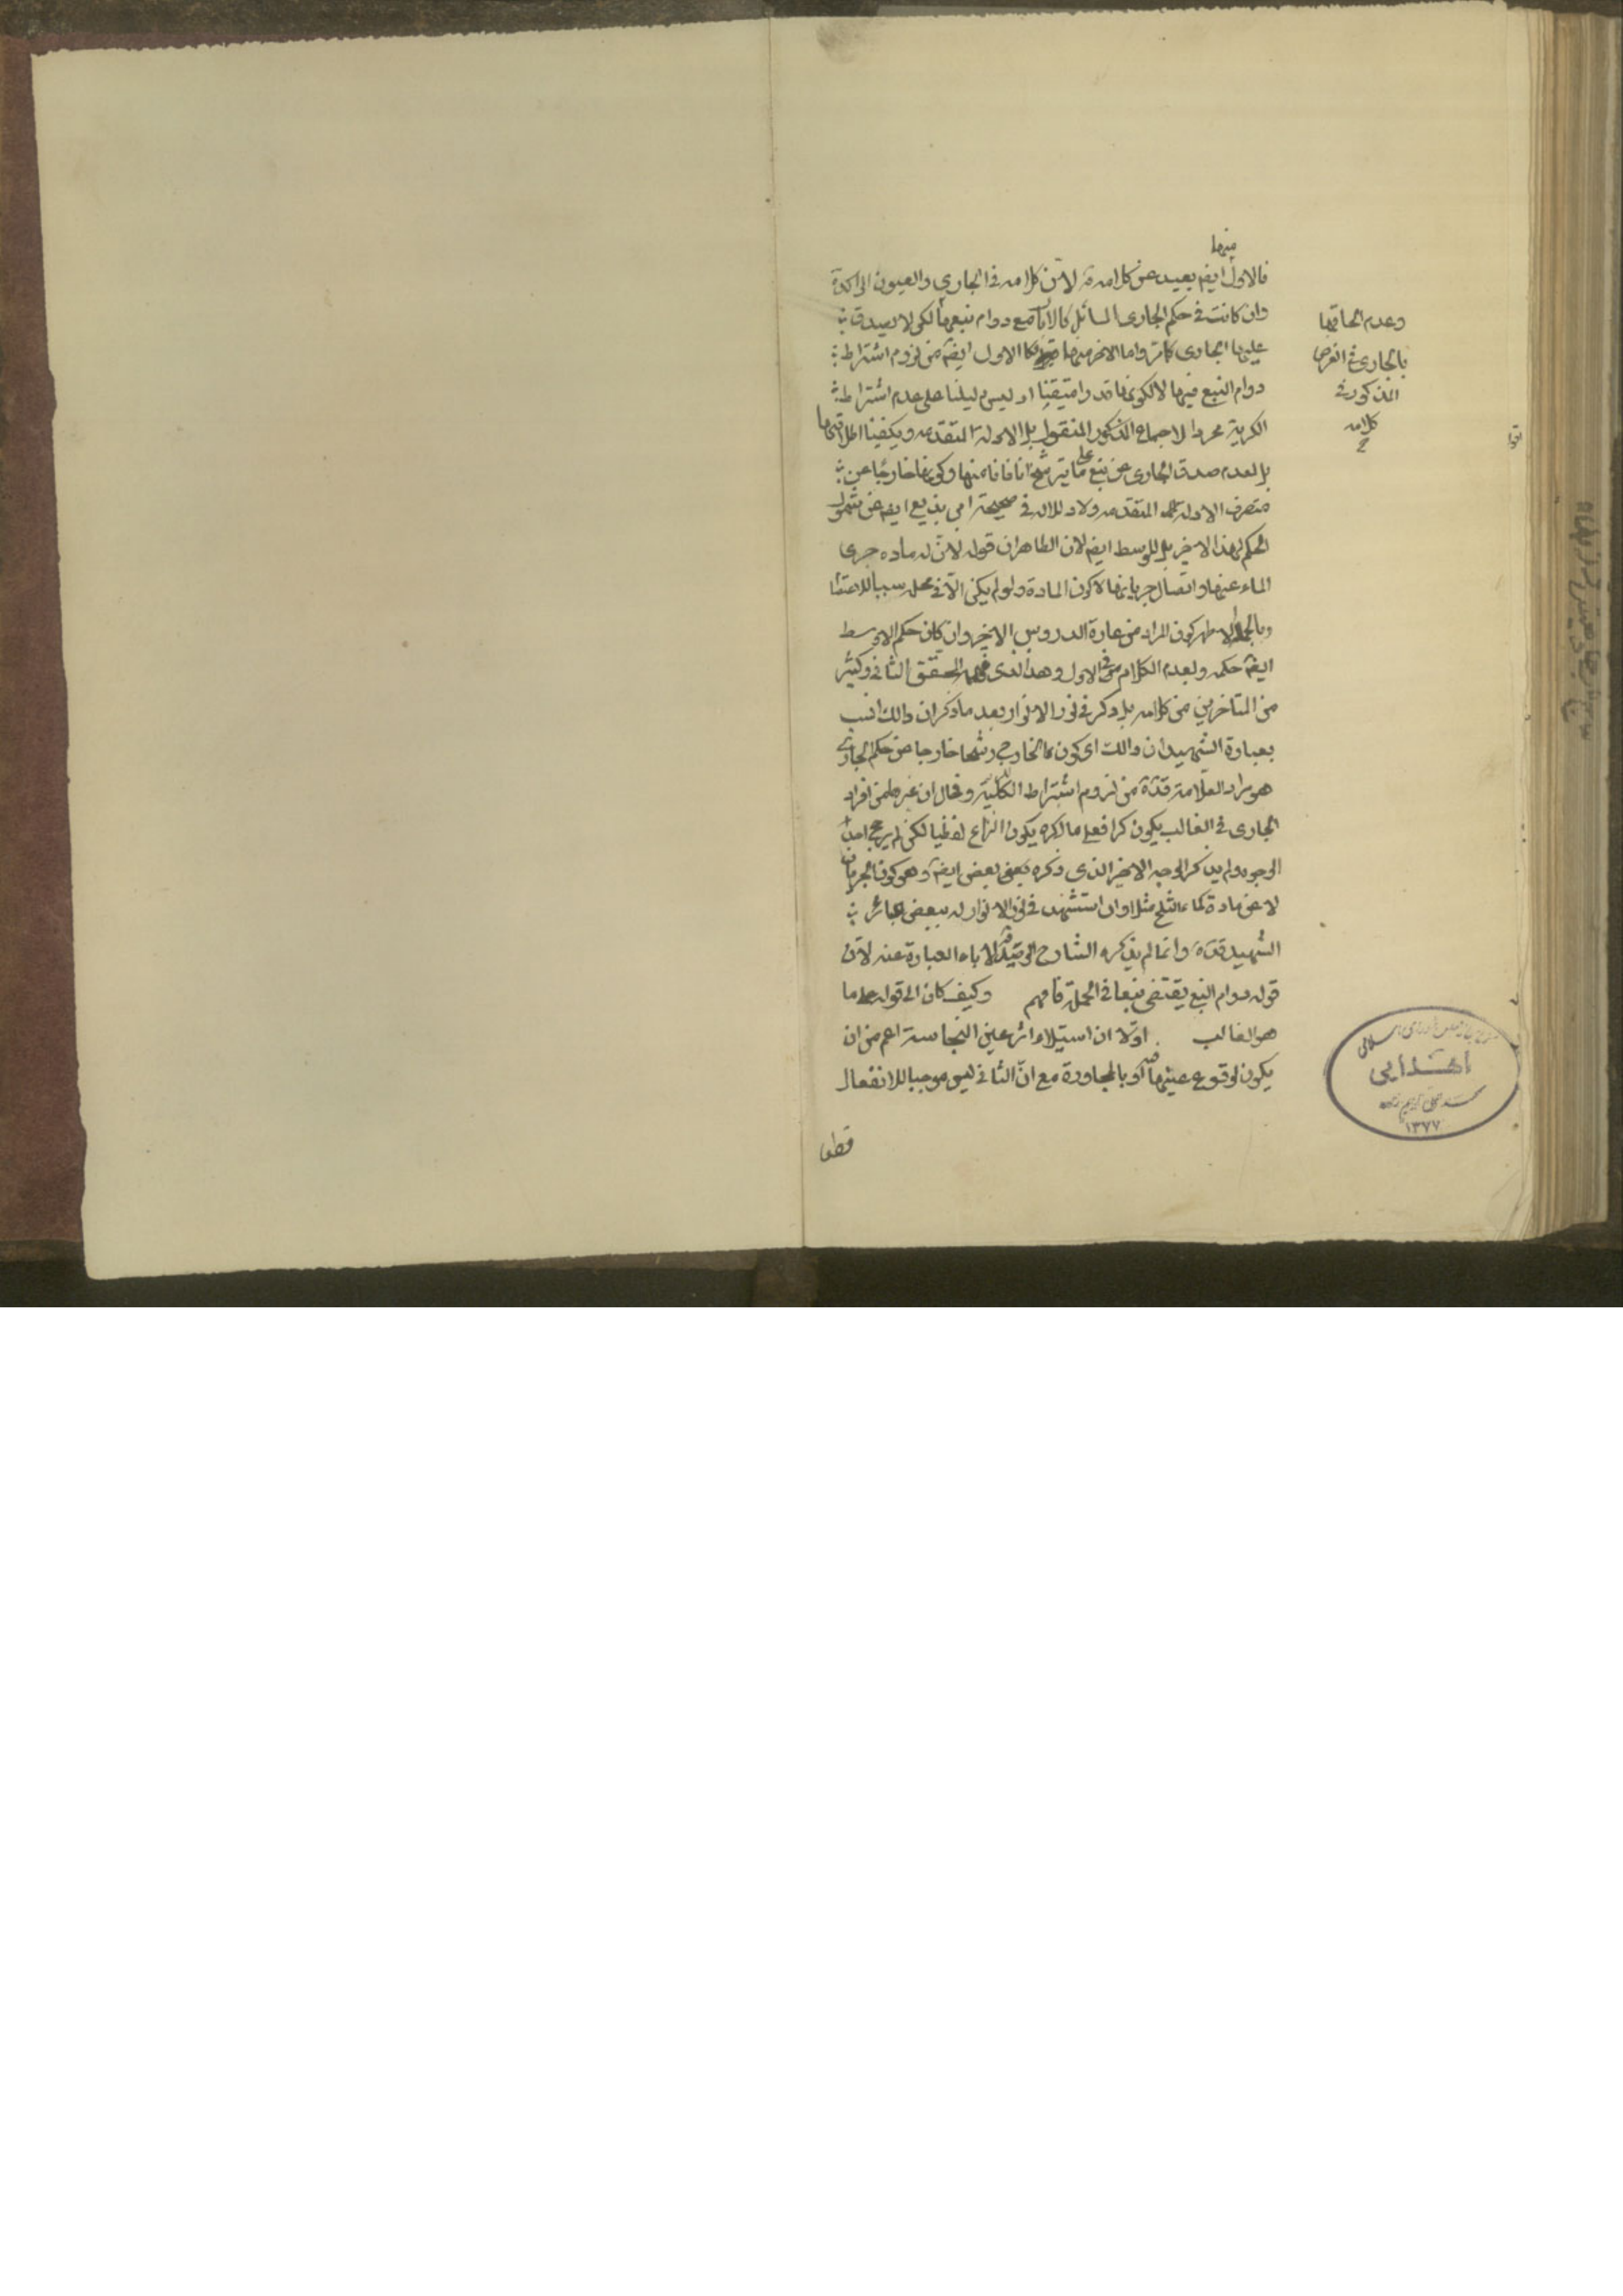 منها
فالاول ايضم بعيد عن كلامه ره لان كلامه فى الجارى والعيون الراكدة
وان كانت فى حكم الجارى السائل مع دوام نبعها لكن لا يصدق
عليها الجارى كما مر واما الاخر منها فكا الاول ايضم من لزوم اشتراط
دوام النبع فيها لا لكونها قدرا متيقنا اذ ليس دليلنا على عدم اشتراط
الكرية مجرد الاجماع المذكور المنقول بل الادلة المتقدمه ويكفينا اطلاقها
بل لعدم صدق الجارى عن نبع على ما يترشح انا فانا منها وكونها خارجا عن
متصرف الادلة المتقدمه ولا دلاله فى صحيحة ابن بذيع ايضم عن شمول
الحكم لهذا الاخير بل للوسط ايضم لان الظاهر ان قوله لان له ماده جرى
الماء عنها واتصال جريانها لا كون المادة ولو لم يكن الآن فى محل سببا للاعتصا
وبالجملة الاظهر كون المراد من عبارة الدروس الاخير وان كان حكم الاوسط
ايضم حكمه وبعدم الكلام فى الاول وهذا الذى فهمه المحقق الثانى وكثير
من المتاخرين من كلامه بل ذكر فى نور الانوار بعد ما ذكر ان ذالك انسب
بعبارة الشهيد ان ذالك اى كون ما الخارج رشحا خارجا من حكم الجارى
هو مراد العلامة قدة من لزوم اشتراط الكرية وقال ان غيره من افراد
الجارى فى الغالب يكون كرا فعلى ما ذكره يكون النزاع لفظيا لكن لم يرجح احد
الوجوه ولم يذكر الوجه الاخير الذى ذكره بعض ايضم وهو كون الجريان
لا عن مادة كماء الثلج مثلا وان استشهد فى نور الانوار له ببعض عبائر
الشهيد قدة وانما لم يذكره الشارح الوحيد لاباء العبارة عنه لان
قوله دوام النبع يقتضى نبعا فى الجملة فافهم وكيف كان الى قوله على ما
هو الغالب اولا ان استيلاء اثر عين النجاسة اعم من ان
يكون لوقوع عينها او بالمجاورة مع ان الثانى ليس موجبا للانفعال
قطعا
وعدم الحاقها
بالجارى فى الغرض
المذكور فى
كلامه
اهدایی
۱۳۷۷